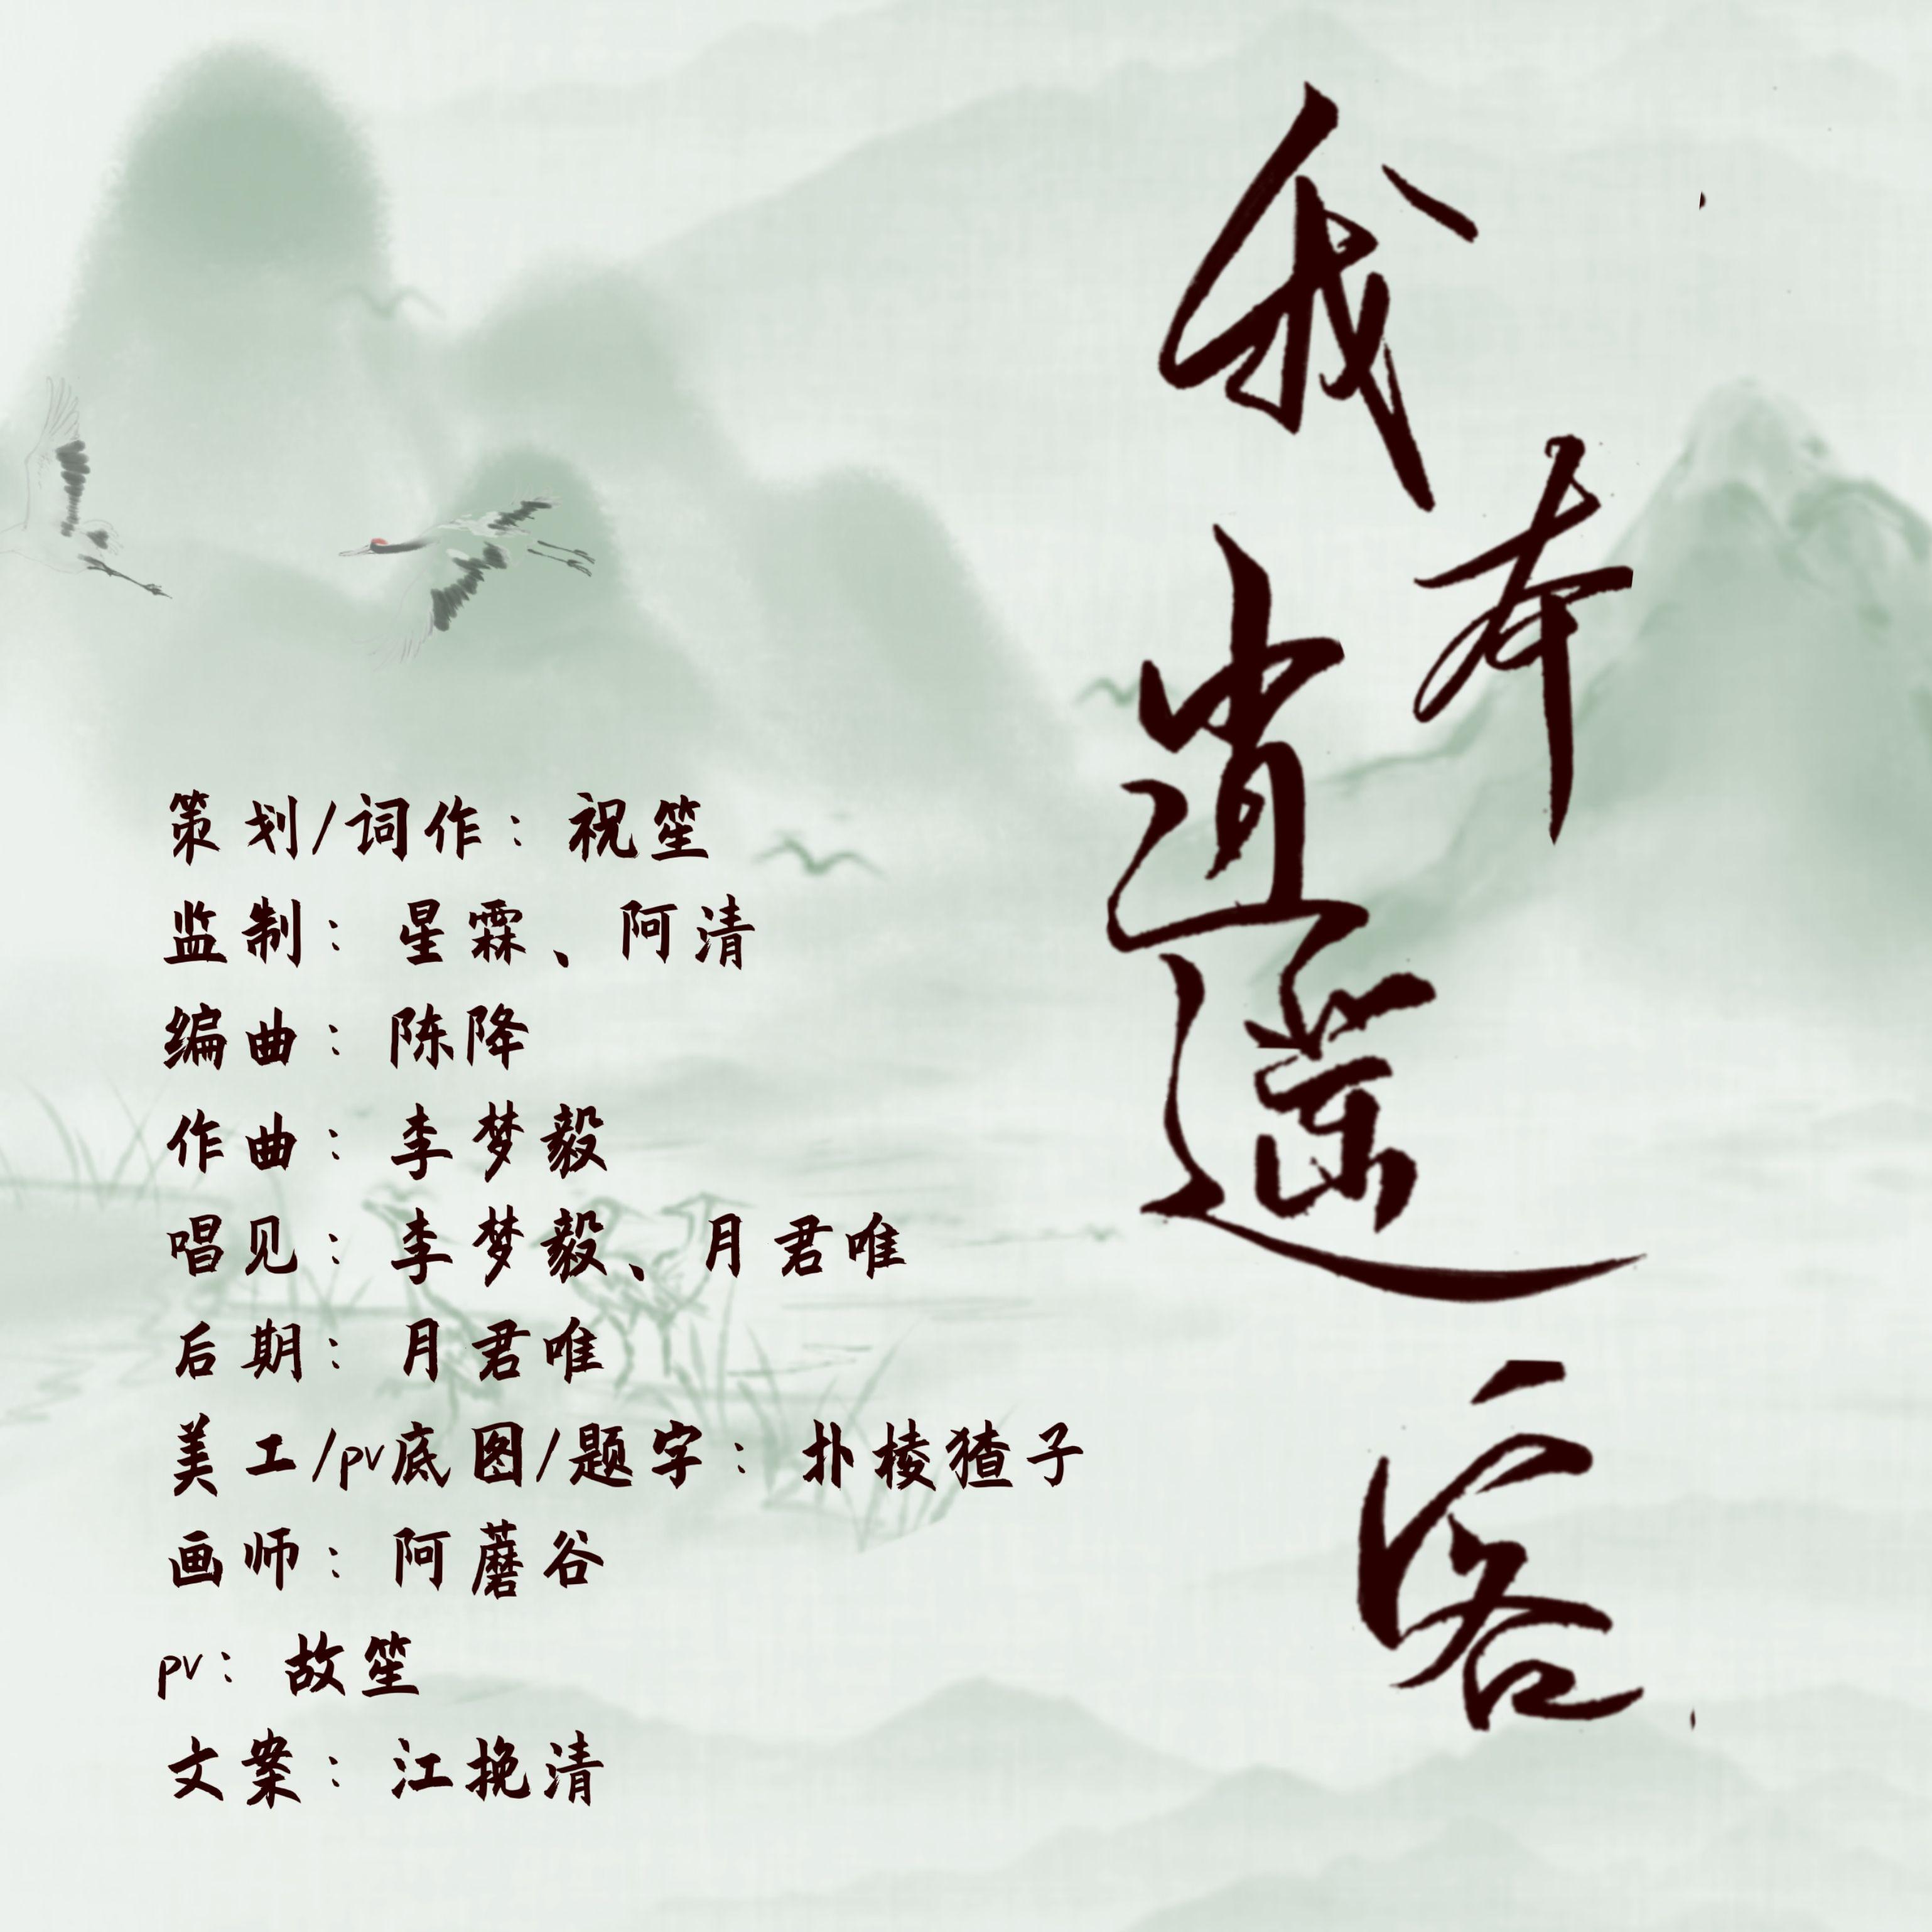 我本逍遥客
策划/词作：祝笙
监制：星霖、阿清
编曲：陈降
作曲：李梦毅
唱见：李梦毅、月君唯
后期：月君唯
美工/pv底图/题字：扑棱猹子
画师：阿蘑谷
pv：故笙
文案：江挽清